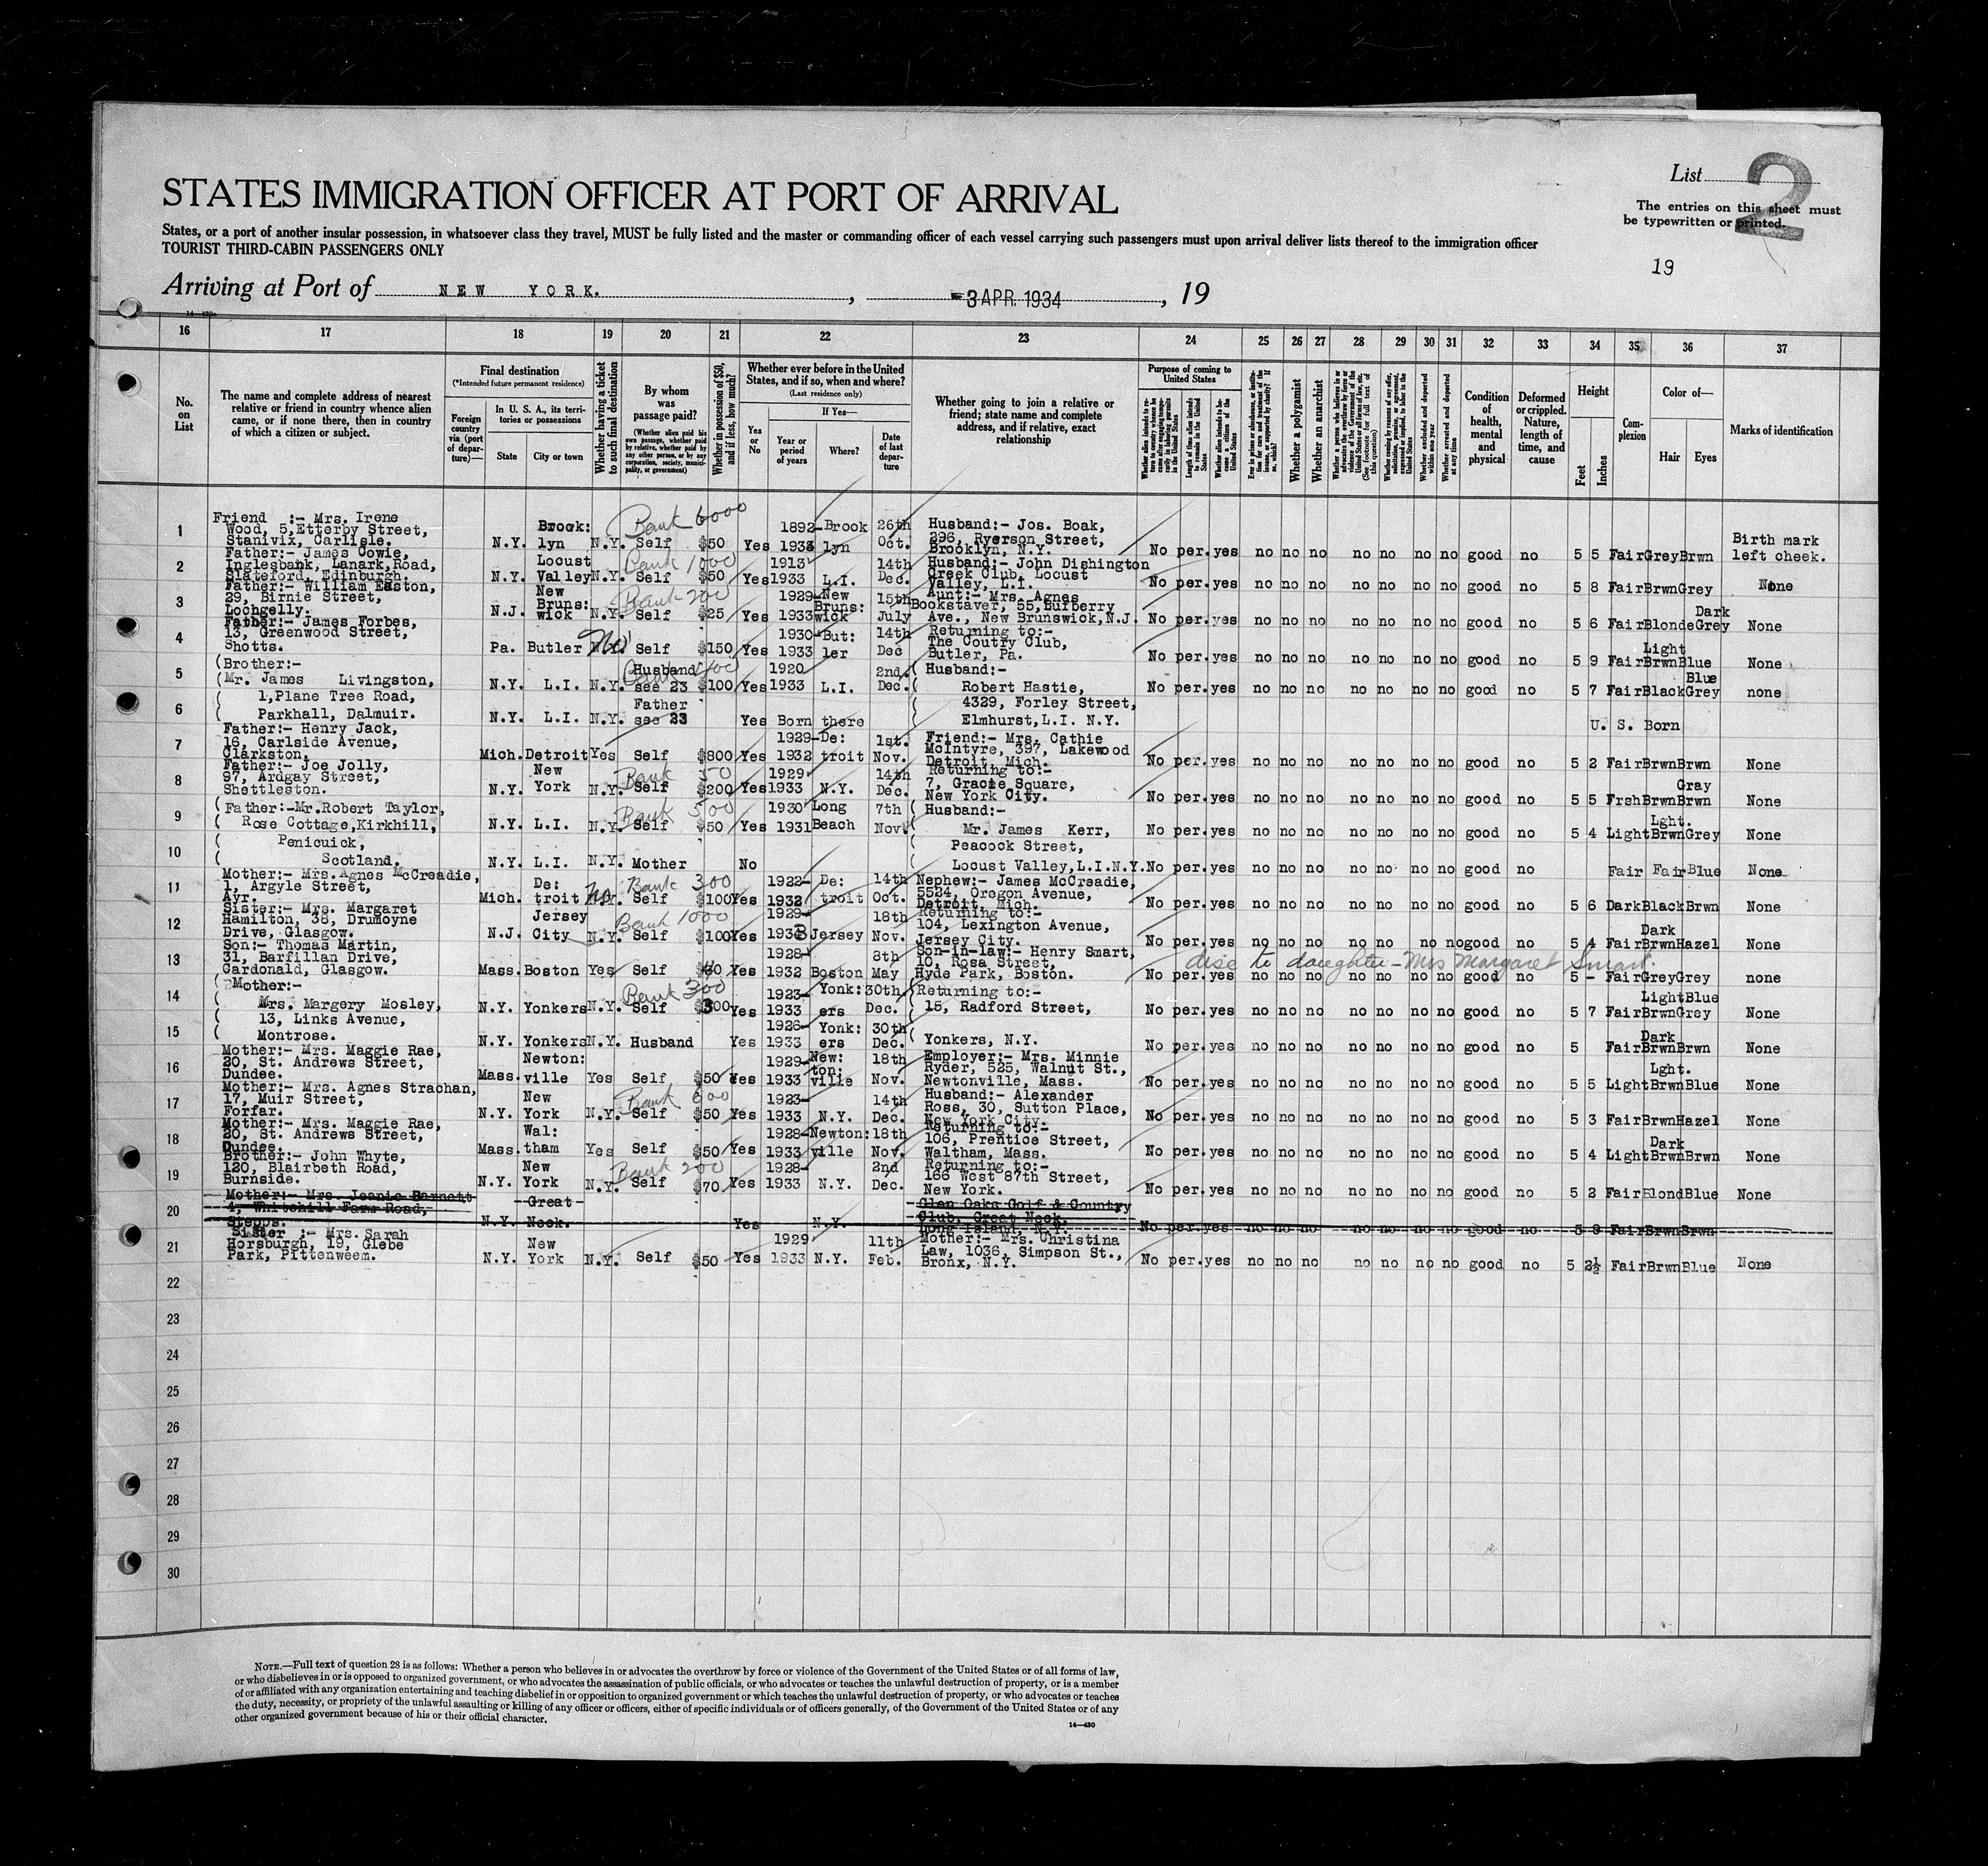 List 2
STATES IMMIGRATION OFFICER AT PORT OF ARRIVAL
The entries on this sheet must
be typewritten or printed.
States, or a port of another insular possession, in whatsoever class they travel, MUST be fully listed and the master or commanding officer of each vessel carrying such passengers must upon arrival deliver lists thereof to the immigration officer
TOURIST THIRD-CABIN PASSENGERS ONLY
19
Arriving at Port of NEW YORK. , 3 APR. 1934 , 19
16 17 18 19 20 21 22 23 24 25 26 27 28 29 30 31 32 33 34 35 36 37
No. on List
The name and complete address of nearest
relative or friend in country whence alien
came, or if none there, then in country
of which a citizen or subject.
Final destination
(*Intended future permanent residence)
Foreign country via (port of departure)—
In U. S. A., its territories or possessions
State
City or town
Whether having a ticket to such final destination
By whom was passage paid?
(Whether alien paid his own passage, whether paid by relative, whether paid by any other person, or by any corporation, society, municipality, or government)
Whether in possession of $50, and if less, how much?
Whether ever before in the United
States, and if so, when and where?
(Last residence only)
Yes or No
If Yes—
Year or period of years
Where?
Date of last departure
Whether going to join a relative or
friend; state name and complete
address, and if relative, exact
relationship
Purpose of coming to United States
Length of time alien intends to remain in the United States
Whether alien intends to become a citizen of the United States
Whether a polygamist
Whether an anarchist
Whether excluded and deported within one year
Whether arrested and deported at any time
Condition of health, mental and physical
Deformed or crippled. Nature, length of time, and cause
Height
Feet
Inches
Complexion
Color of—
Hair
Eyes
Marks of identification
1 Friend :- Mrs. Irene Wood, 5, Etterby Street, Stanivix, Carlisle. N.Y. Brook: lyn N.Y. Bank 6000 Self $50 Yes 1892- 1933 Brook lyn 26th Oct. Husband:- Jos. Boak, 296, Ryerson Street, Brooklyn, N.Y. No per. yes no no no no no no no good no 5 5 Fair Grey Brwn Birth mark left cheek.
2 Father:- James Cowie, Inglesbank, Lanark, Road, Slateford, Edinburgh. N.Y. Locust Valley N.Y. Bank 1000 Self $50 Yes 1913 1933 L.I. 14th Dec. Husband:- John Dishington Creek Club, Locust Valley, L.I. No per. yes no no no no no no no good no 5 8 Fair Brwn Grey None
3 Father:- William Easton, 29, Birnie Street, Lochgelly. N.J. New Bruns: wick N.Y. Bank 200 Self $25 Yes 1929- 1933 New Bruns: wick 15th July Aunt:- Mrs. Agnes Bookstaver, 55, Lufberry Ave., New Brunswick, N.J. No per. yes no no no no no no no good no 5 6 Fair Blonde Dark Grey None
4 Father:- James Forbes, 13, Greenwood Street, Shotts. Pa. Butler No Self $150 Yes 1930- 1933 But: ler 14th Dec Returning to:- The Coutry Club, Butler, Pa. No per. yes no no no no no no no good no 5 9 Fair Light Brwn Blue None
5 (Brother:- (Mr. James Livingston, N.Y. L.I. N.Y. Husband see 23 $100 Yes 1920 1933 L.I. 2nd. Dec. (Husband:- Robert Hastie, No per. yes no no no no no no no good no 5 7 Fair Black Blue Grey none
6 ( 1, Plane Tree Road, ( Parkhall, Dalmuir. N.Y. L.I. N.Y. Father see 23 Yes Born there ( 4329, Forley Street, ( Elmhurst, L.I. N.Y. U. S. Born
7 Father:- Henry Jack, 16, Carlside Avenue, Clarkston. Mich. Detroit Yes Self $800 Yes 1929- 1932 De: troit 1st. Nov. Friend:- Mrs. Cathie McIntyre, 397, Lakewood Detroit, Mich. No per. yes no no no no no no no good no 5 2 Fair Brwn Brwn None
8 Father:- Joe Jolly, 97, Ardgay Street, Shettleston. N.Y. New York N.Y. Bank 50 Self $200 Yes 1929 1933 N.Y. 14th Dec. Returning to:- 7, Gracie Square, New York City. No per. yes no no no no no no no good no 5 5 Frsh Brwn Gray Brwn None
9 (Father:-Mr. Robert Taylor, ( Rose Cottage, Kirkhill, N.Y. L.I. N.Y. Bank 500 Self $50 Yes 1930 1931 Long Beach 7th Nov. (Husband:- ( Mr. James Kerr, No per. yes no no no no no no no good no 5 4 Light Lght. Brwn Grey None
10 ( Penicuick, ( Scotland. N.Y. L.I. N.Y. Mother No Peacock Street, ( Locust Valley, L.I.N.Y. No per. yes no no no no no no no good no Fair Fair Blue None
11 Mother:- Mrs. Agnes McCreadie, 1, Argyle Street, Ayr. Mich. De: troit No. Bank 300 Self $100 Yes 1922- 1932 De: troit 14th Oct. Nephew:- James McCreadie, 5524, Oregon Avenue, Detroit, Mich. No per. yes no no no no no no no good no 5 6 Dark Black Brwn None
12 Sister:- Mrs. Margaret Hamilton, 38, Drumoyne Drive, Glasgow. N.J. Jersey City N.Y. Bank 1000 Self $100 Yes 1929- 1933 Jersey 18th Nov. Returning to:- 104, Lexington Avenue, Jersey City. No per. yes no no no no no no no good no 5 4 Fair Dark Brwn Hazel None
13 Son:- Thomas Martin, 31, Barfillan Drive, Cardonald, Glasgow. Mass. Boston Yes Self $40 Yes 1928- 1932 Boston 8th May Son-in-law:- Henry Smart, 10, Rosa Street, Hyde Park, Boston. disc to daughter - Mrs Margaret Smart. No per. yes no no no no no no no good no 5 - Fair Grey Grey none
14 (Mother:- ( Mrs. Margery Mosley, N.Y. Yonkers N.Y. Bank 300 Self $300 Yes 1923- 1933 Yonk: ers 30th Dec. (Returning to:- (15, Radford Street, No per. yes no no no no no no no good no 5 7 Fair Light Brwn Blue Grey None
15 ( 13, Links Avenue, ( Montrose. N.Y. Yonkers N.Y. Husband Yes 1926- 1933 Yonk: ers 30th Dec. ( Yonkers, N.Y. No per. yes no no no no no no no good no 5 Fair Dark Brwn Brwn None
16 Mother:- Mrs. Maggie Rae, 20, St. Andrews Street, Dundee. Mass. Newton: ville Yes Self $50 Yes 1929- 1933 New: ton: ville 18th Nov. Employer:- Mrs. Minnie Ryder, 525, Walnut St., Newtonville, Mass. No per. yes no no no no no no no good no 5 5 Light Lght. Brwn Blue None
17 Mother:- Mrs. Agnes Strachan, 17, Muir Street, Forfar. N.Y. New York N.Y. Bank 600 Self $50 Yes 1923- 1933 N.Y. 14th Dec. Husband:- Alexander Ross, 30, Sutton Place, New York City. No per. yes no no no no no no no good no 5 3 Fair Brwn Hazel None
18 Mother:- Mrs. Maggie Rae, 20, St. Andrews Street, Dundee. Mass. Wal: tham Yes Self $50 Yes 1928- 1933 Newton: ville 18th Nov. Returning to:- 106, Prentice Street, Waltham, Mass. No per. yes no no no no no no no good no 5 4 Light Dark Brwn Brwn None
19 Brother:- John Whyte, 120, Blairbeth Road, Burnside. N.Y. New York N.Y. Bank 200 Self $70 Yes 1928- 1933 N.Y. 2nd Dec. Returning to:- 166 West 87th Street, New York. No per. yes no no no no no no no good no 5 2 Fair Blond Blue None
20 Mother:- Mrs. Jeanie Barnett 4, Whitehill Farm Road, Stepps. N.Y. Great Neck. Yes N.Y. Glen Oaks Golf & Country Club, Great Neck, Long Island, N.Y. No per. yes no no no no no no no good no 5 8 Fair Brwn Brwn
21 Sister :- Mrs. Sarah Horsburgh, 19, Glebe Park, Pittenweem. N.Y. New York N.Y. Self $50 Yes 1929 1933 N.Y. 11th Feb. Mother:- Mrs. Christina Law, 1036, Simpson St., Bronx, N.Y. No per. yes no no no no no no no good no 5 2½ Fair Brwn Blue None
22
23
24
25
26
27
28
29
30
NOTE.—Full text of question 28 is as follows: Whether a person who believes in or advocates the overthrow by force or violence of the Government of the United States or of all forms of law,
or who disbelieves in or is opposed to organized government, or who advocates the assassination of public officials, or who advocates or teaches the unlawful destruction of property, or is a member
of or affiliated with any organization entertaining and teaching disbelief in or opposition to organized government or which teaches the unlawful destruction of property, or who advocates or teaches
the duty, necessity, or propriety of the unlawful assaulting or killing of any officer or officers, either of specific individuals or of officers generally, of the Government of the United States or of any
other organized government because of his or their official character.
14—430